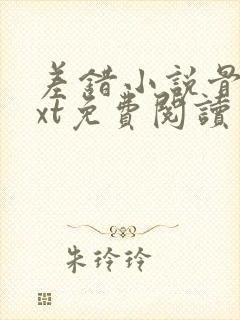 差錯小說骨
xt免費閱讀
朱玲玲